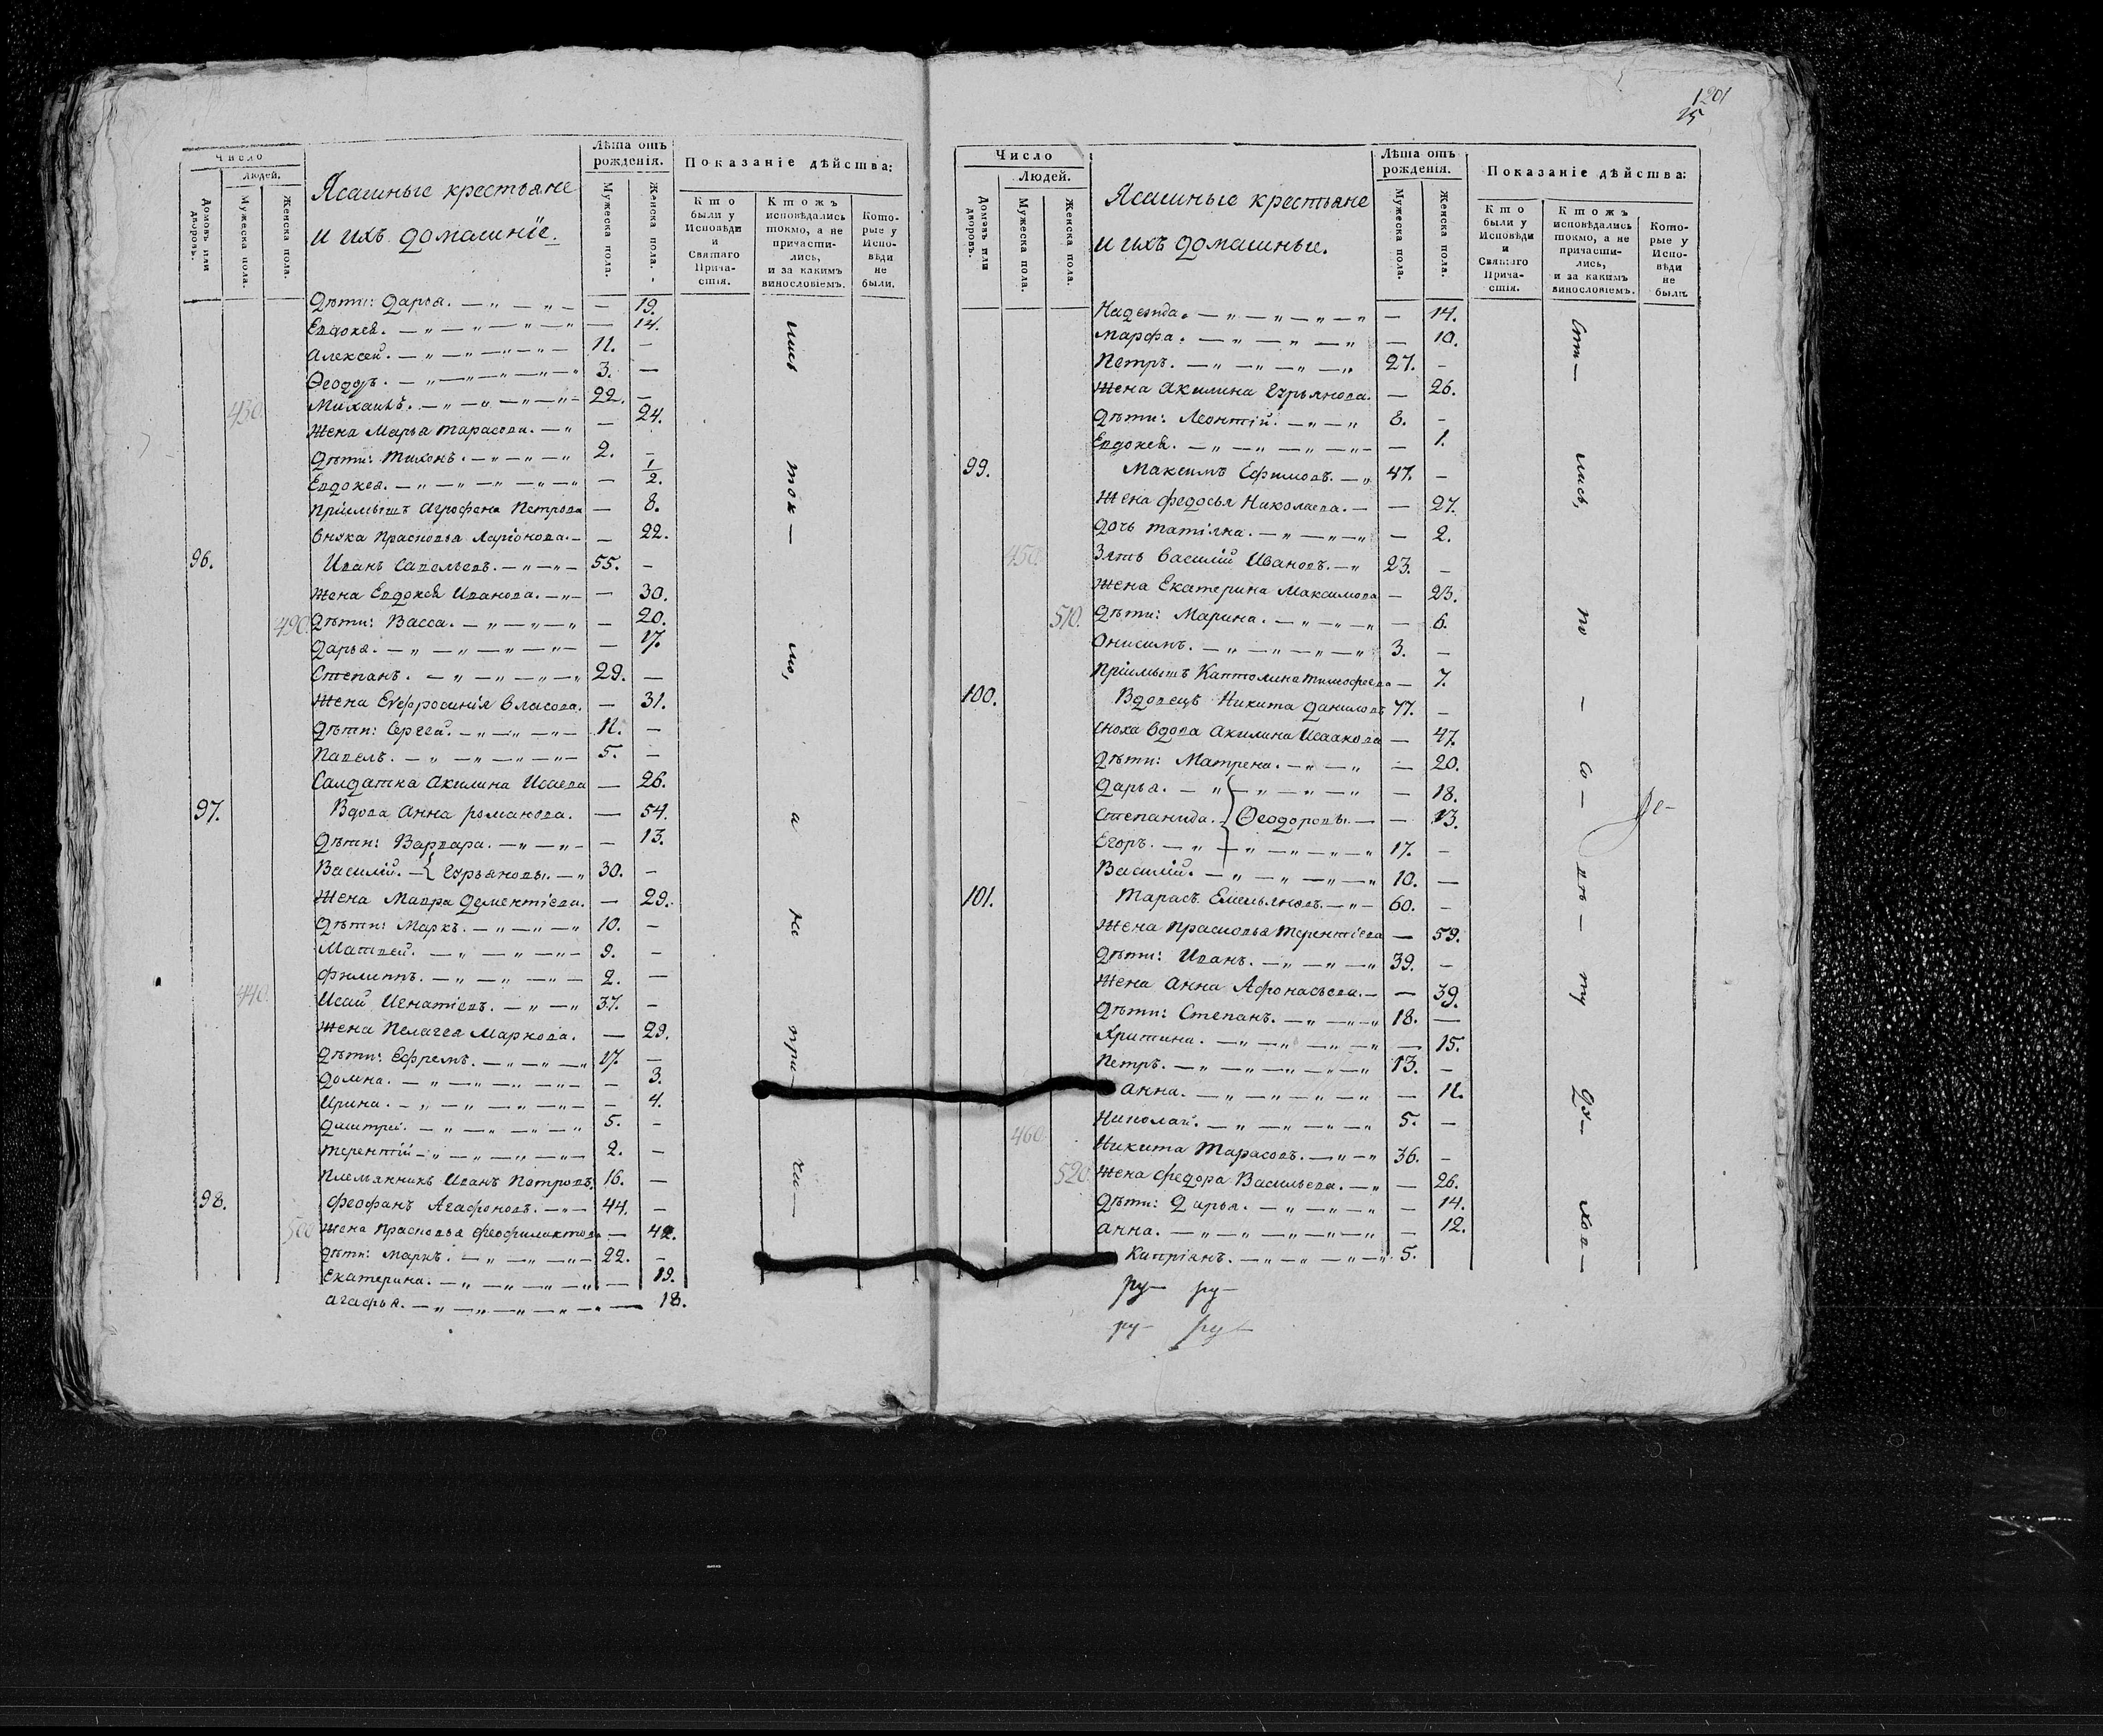 Число
Людей.
Домовъ или дворовъ.
Мужеска пола.
Женска пола.
Ясашные крестьяне
и ихъ домашнїе.
Лѣта отъ рожденія.
Мужеска пола.
Женска пола.
Показаніе дѣйства:
Кто были у Исповѣди и Святаго Прича-стія.
Ктожъ исповѣдались токмо, а не причасти-лись, и за какимъ винословіемъ.
Кото-рые у Испо-вѣди не были.
Дѣти: Дарья. — 19.
Евдокея. — 14.
Алексей. 11. —
Ѳеодоръ. 3. —
430 Михаилъ. 22. —
Жена Марья Тарасова. — 24.
Дѣти: Тихонъ. 2. —
Евдокея. — 1/2.
Пріимышъ Агрофена Петрова — 8.
Сноха Прасковья Ларіонова. — 22.
96. Иванъ Савельевъ. 55. —
Жена Евдокея Иванова. — 30.
490. Дѣти: Васса. — 20.
Дарья. — 17.
Степанъ. 29. —
Жена Еѵфросинія Власова. — 31.
Дѣти: Сергей. 11. —
Павелъ. 5. —
Салдатка Акилина Исаева — 26.
97. Вдова Анна Романова. — 54.
Дѣти: Варвара. — 13.
Василій. Гурьяновы. 30. —
Жена Мавра Дементіева. — 29.
Дѣти: Маркъ. 10. —
Матвей. 9. —
Филиппъ. 2. —
440. Исай Игнатіевъ. 37. —
Жена Пелагея Маркова. — 29.
Дѣти: Ефремъ. 17. —
Домна. — 3.
Ирина. — 4.
Дмитрей. 5. —
Терентій 2. —
Племянникъ Иванъ Петровъ. 16. —
98. Феофанъ Агафоновъ. 44. —
500 Жена Прасковья Феофилактова — 42.
Дѣти: Маркъ. 22. —
Екатерина. — 19.
Агафья. — 18.
лись
ток—
мо,
а
не
при—
ча—
1201
15
Число
Людей.
Домовъ или дворовъ.
Мужеска пола.
Женска пола.
Ясашные крестьяне
и ихъ домашные.
Лѣта отъ рожденія.
Мужеска пола.
Женска пола.
Показаніе дѣйства:
Кто были у Исповѣди и Святаго Прича-стія.
Ктожъ исповѣдались токмо, а не причасти-лись, и за какимъ винословіемъ.
Кото-рые у Испо-вѣди не были
Надежда. — 14.
Марфа. — 10.
Петръ. 27. —
Жена Акилина Гурьянова. — 26.
Дѣти: Леонтій. 8. —
Евдокея. — 1.
99. Максимъ Ефимовъ. 47. —
Жена Федосья Николаева. — 27.
Дочь Татіяна. — 2.
450. Зять Василій Ивановъ. 23. —
Жена Екатерина Максимова — 23.
510. Дѣти: Марина. — 6.
Онисимъ. 3. —
Пріимышъ Каптолина Тимофеева — 7.
100. Вдовецъ Никита Даниловъ 77. —
Сноха вдова Акилина Исаакова — 47.
Дѣти: Матрена. — 20.
Дарья. — 18.
Степанида. Ѳеодоровы. — 13.
Егоръ. 17. —
Василій. 10. —
101. Тарасъ Емельяновъ. 60. —
Жена Прасковья Терентіева — 59.
Дѣти: Иванъ. 39. —
Жена Анна Афонасьева. — 39.
Дѣти: Степанъ. 18. —
Хритина. — 15.
Петръ. 13. —
Анна. — 11.
460. Николай. 5. —
Никита Тарасовъ. 36. —
520. Жена Федора Васильева. — 26.
Дѣти: Дарья. — 14.
Анна. — 12.
Кипріянъ. 5.
ру— ру—
ру— ру—
сти—
лись,
по
—
со—
вѣ—
ту
ду—
хов—